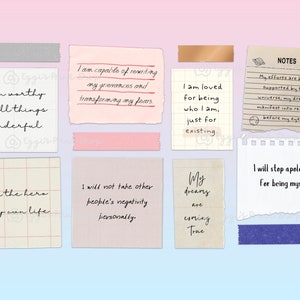 worthy
all things
wonderful.
I am capable of rewriting
my grievances and
transforming my fears.
I am loved
for being
who I am,
just for
existing.
NOTES
My efforts are
supported by
universe; my
manifest
before my
the hero
own life.
I will not take other
people's negativity
personally.
My
dreams
are
coming
True
I will stop
for being